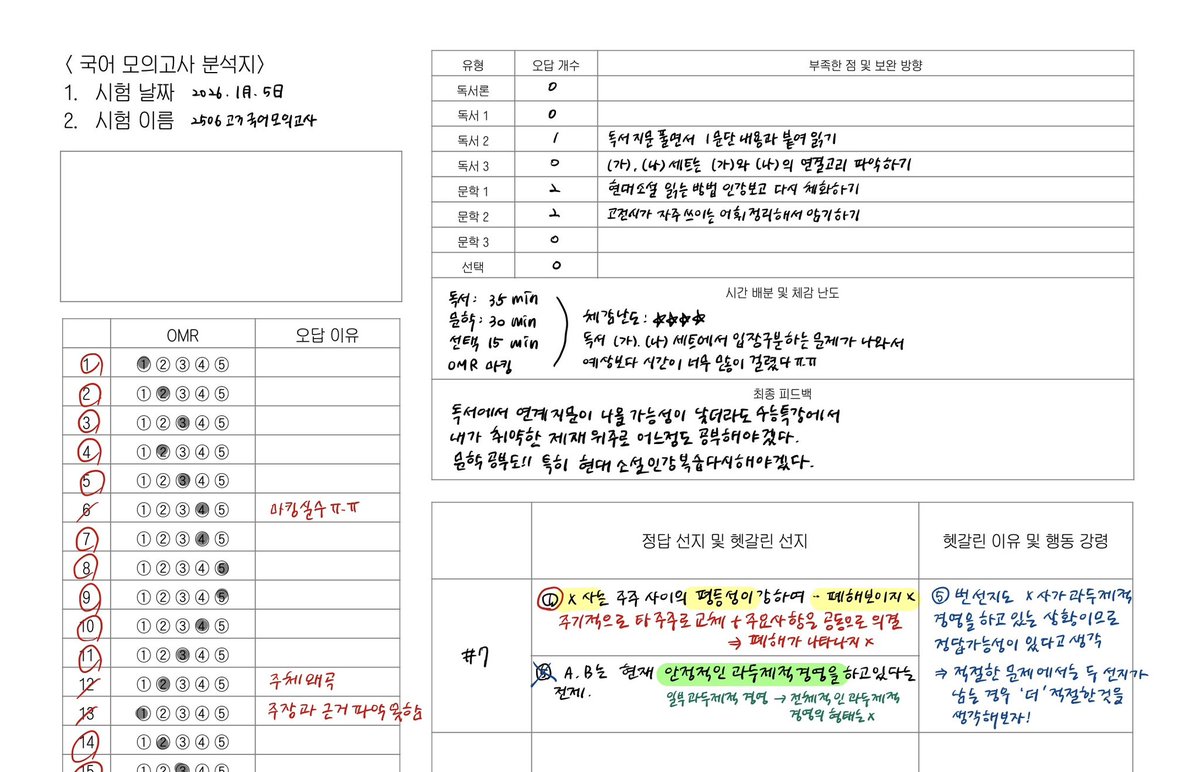 < 국어 모의고사 분석지>
1. 시험 날짜 2026. 1月. 5日
2. 시험 이름 2506 고1 국어모의고사
OMR 오답 이유
1 ① ② ③ ④ ⑤
2 ① ② ③ ④ ⑤
3 ① ② ③ ④ ⑤
4 ① ② ③ ④ ⑤
5 ① ② ③ ④ ⑤
6 ① ② ③ ④ ⑤ 마킹실수 ㅠ-ㅠ
7 ① ② ③ ④ ⑤
8 ① ② ③ ④ ⑤
9 ① ② ③ ④ ⑤
10 ① ② ③ ④ ⑤
11 ① ② ③ ④ ⑤
12 ① ② ③ ④ ⑤ 주체 왜곡
13 ① ② ③ ④ ⑤ 주장과 근거 파악 못함
14 ① ② ③ ④ ⑤
15 ① ② ③ ④ ⑤
유형 오답 개수 부족한 점 및 보완 방향
독서론 0
독서 1 0
독서 2 1 독서 지문 풀면서 1문단 내용과 붙여 읽기
독서 3 0 (가), (나) 세트는 (가)와 (나)의 연결고리 파악하기
문학 1 2 현대소설 읽는 방법 인강보고 다시 체화하기
문학 2 2 고전시가 자주 쓰이는 어휘 정리해서 암기하기
문학 3 0
선택 0
시간 배분 및 체감 난도
독서: 35 min
문학: 30 min
선택 15 min
OMR 마킹
체감난도: ☆☆☆☆
독서 (가). (나) 세트에서 입장구분하는 문제가 나와서
예상보다 시간이 너무 많이 걸렸다 ㅠㅠ
최종 피드백
독서에서 연계 지문이 나올 가능성이 낮더라도 수능특강에서
내가 취약한 제재 위주로 어느정도 공부해야겠다.
문학 공부도!! 특히 현대 소설 인강 복습 다시해야겠다.
정답 선지 및 헷갈린 선지 헷갈린 이유 및 행동 강령
#7
① X 사는 주주 사이의 평등성이 강하여 ~ 폐해보이지 X
주기적으로 타 주주로 교체 + 주요사항을 공동으로 의결
⇒ 폐해가 나타나지 X
⑤ A.B는 현재 안정적인 과두제적 경영을 하고있다는
전제.
일부 과두제적 경영 → 전체적인 과두제적
경영의 형태는 X
⑤번 선지도 X 사가 과두제적
경영을 하고 있는 상황이므로
정답가능성이 있다고 생각
⇒ 적절한 문제에서는 두 선지가
남는 경우 '더' 적절한것을
생각해보자!